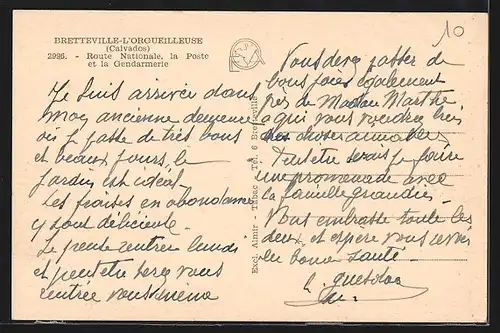 BRETTEVILLE-L'ORGUEILLEUSE
(Calvados)
2926. - Route Nationale, la Poste
et la Gendarmerie
Je suis arrivée dans
mon ancienne demeure
où je passe de très bons
et beaux jours, le
jardin est idéal
Les fraises en abondance
y sont délicieuses
Je pense rentrer lundi
et peut être serez vous
rentrée vous même
Excl. Almir - Tabac - Tél. 6 Bretteville
10
Vous devez passer de
bons jours également
près de Madame Marthe
à qui vous voudrez bien
des choses aimables
Peut être serais je faire
une promenade avec
la famille
Vous embrasse toute les
deux, et espère vous revoir
en bonne santé